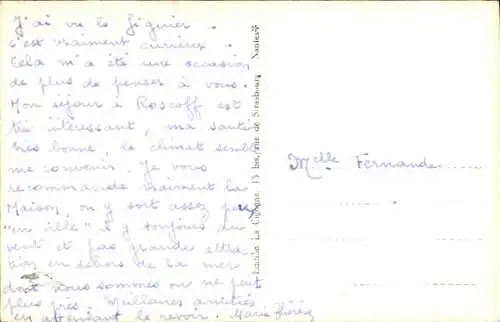 J'ai vu le figuier.
c'est vraiment curieux.
Cela m'a été une occasion
de plus de penser à vous.
Mon séjour à Roscoff est
très intéressant, ma santé
très bonne, le climat semble
me convenir. Je vous
recommande vraiment la
Maison, on y sort assez peu
"en ville" il y toujours du
vent et pas grande attra
tion en dehors de la mer
dont nous sommes on ne peut
plus près. Meilleures amitiés
en attendant le revoir. Marie Thérèse
La Cigogne, 15 bis, rue de Strasbourg Nantes
Melle Fernande